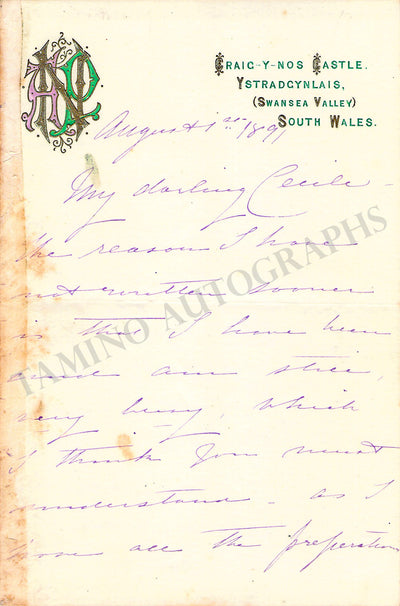 ANP
Craig-y-nos Castle.
Ystradgynlais,
(Swansea Valley)
South Wales.
August 1st 1891
My darling Cecile -
the reason I have
not written sooner
is that I have been
and am still,
very busy, which
I think you must
understand - as I
have all the preperation
TAMINO AUTOGRAPHS